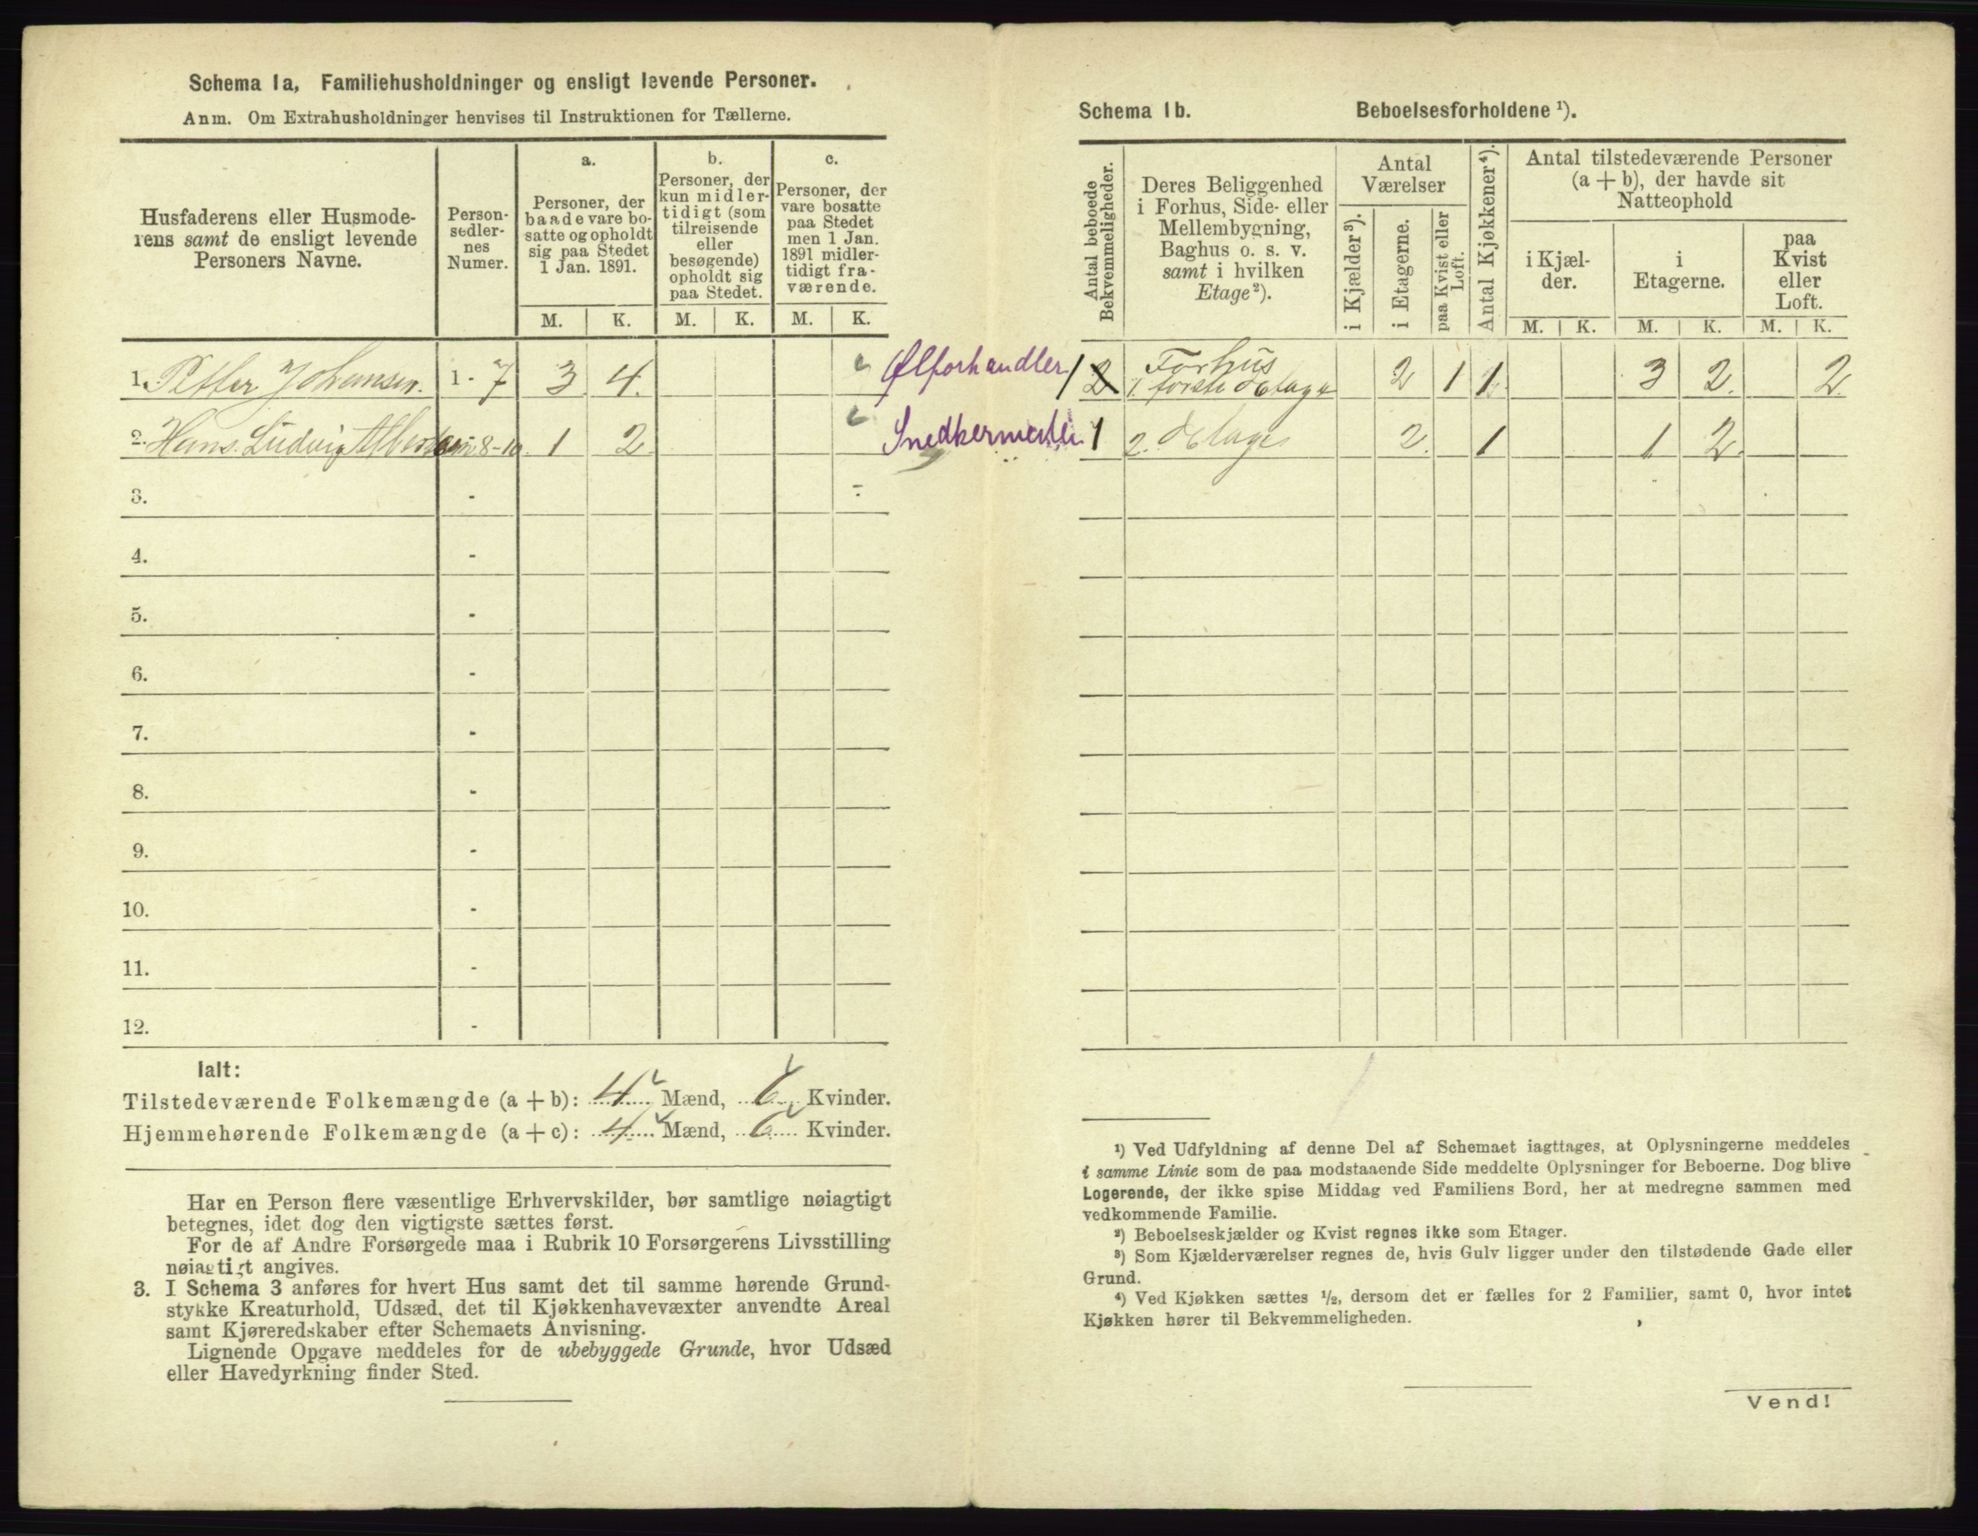 Schema 1a, Familiehusholdninger og ensligt levende Personer.
Anm. Om Extrahusholdninger henvises til Instruktionen for Tællerne.
Husfaderens eller Husmode-
rens samt de ensligt levende
Personers Navne.
Person-
sedler-
nes
Numer.
a.
Personer, der
baade vare bo-
satte og opholdt
sig paa Stedet
1 Jan. 1891.
b.
Personer, der
kun midler-
tidigt (som
tilreisende
eller
besøgende)
opholdt sig
paa Stedet.
c.
Personer, der
vare bosatte
paa Stedet
men 1 Jan.
1891 midler-
tidigt fra-
værende.
M. K. M. K. M. K.
1. Petter Johansen. 1 - 7 3 4. Ølforhandler
2. Hans Ludvig 8-10 1 2
3. -
4. -
5. -
6. -
7. -
8. -
9. -
10. -
11. -
12. -
Ialt:
Tilstedeværende Folkemængde (a + b): 4 Mænd, 6 Kvinder.
Hjemmehørende Folkemængde (a + c): 4 Mænd, 6 Kvinder.
Har en Person flere væsentlige Erhvervskilder, bør samtlige nøiagtigt
betegnes, idet dog den vigtigste sættes først.
For de af Andre Forsørgede maa i Rubrik 10 Forsørgerens Livsstilling
nøiagtigt angives.
3. I Schema 3 anføres for hvert Hus samt det til samme hørende Grund-
stykke Kreaturhold, Udsæd, det til Kjøkkenhavevæxter anvendte Areal
samt Kjøreredskaber efter Schemaets Anvisning.
Lignende Opgave meddeles for de ubebyggede Grunde, hvor Udsæd
eller Havedyrkning finder Sted.
Schema 1b. Beboelsesforholdene ¹).
Antal beboede
Bekvemmeligheder.
Deres Beliggenhed
i Forhus, Side- eller
Mellembygning,
Baghus o. s. v.
samt i hvilken
Etage²).
Antal
Værelser
i Kjælder³).
i Etagerne.
paa Kvist eller
Loft.
Antal Kjøkkener⁴).
Antal tilstedeværende Personer
(a + b), der havde sit
Natteophold
i Kjæl-
der.
i
Etagerne.
paa
Kvist
eller
Loft.
M. K. M. K. M. K.
1 2 Forhus
1. første Etage 2 1 1 3 2. 2.
1 2. Etage 2. 1 1 2.
¹) Ved Udfyldning af denne Del af Schemaet iagttages, at Oplysningerne meddeles
i samme Linie som de paa modstaaende Side meddelte Oplysninger for Beboerne. Dog blive
Logerende, der ikke spise Middag ved Familiens Bord, her at medregne sammen med
vedkommende Familie.
²) Beboelseskjælder og Kvist regnes ikke som Etager.
³) Som Kjælderværelser regnes de, hvis Gulv ligger under den tilstødende Gade eller
Grund.
⁴) Ved Kjøkken sættes ½, dersom det er fælles for 2 Familier, samt 0, hvor intet
Kjøkken hører til Bekvemmeligheden.
Vend!